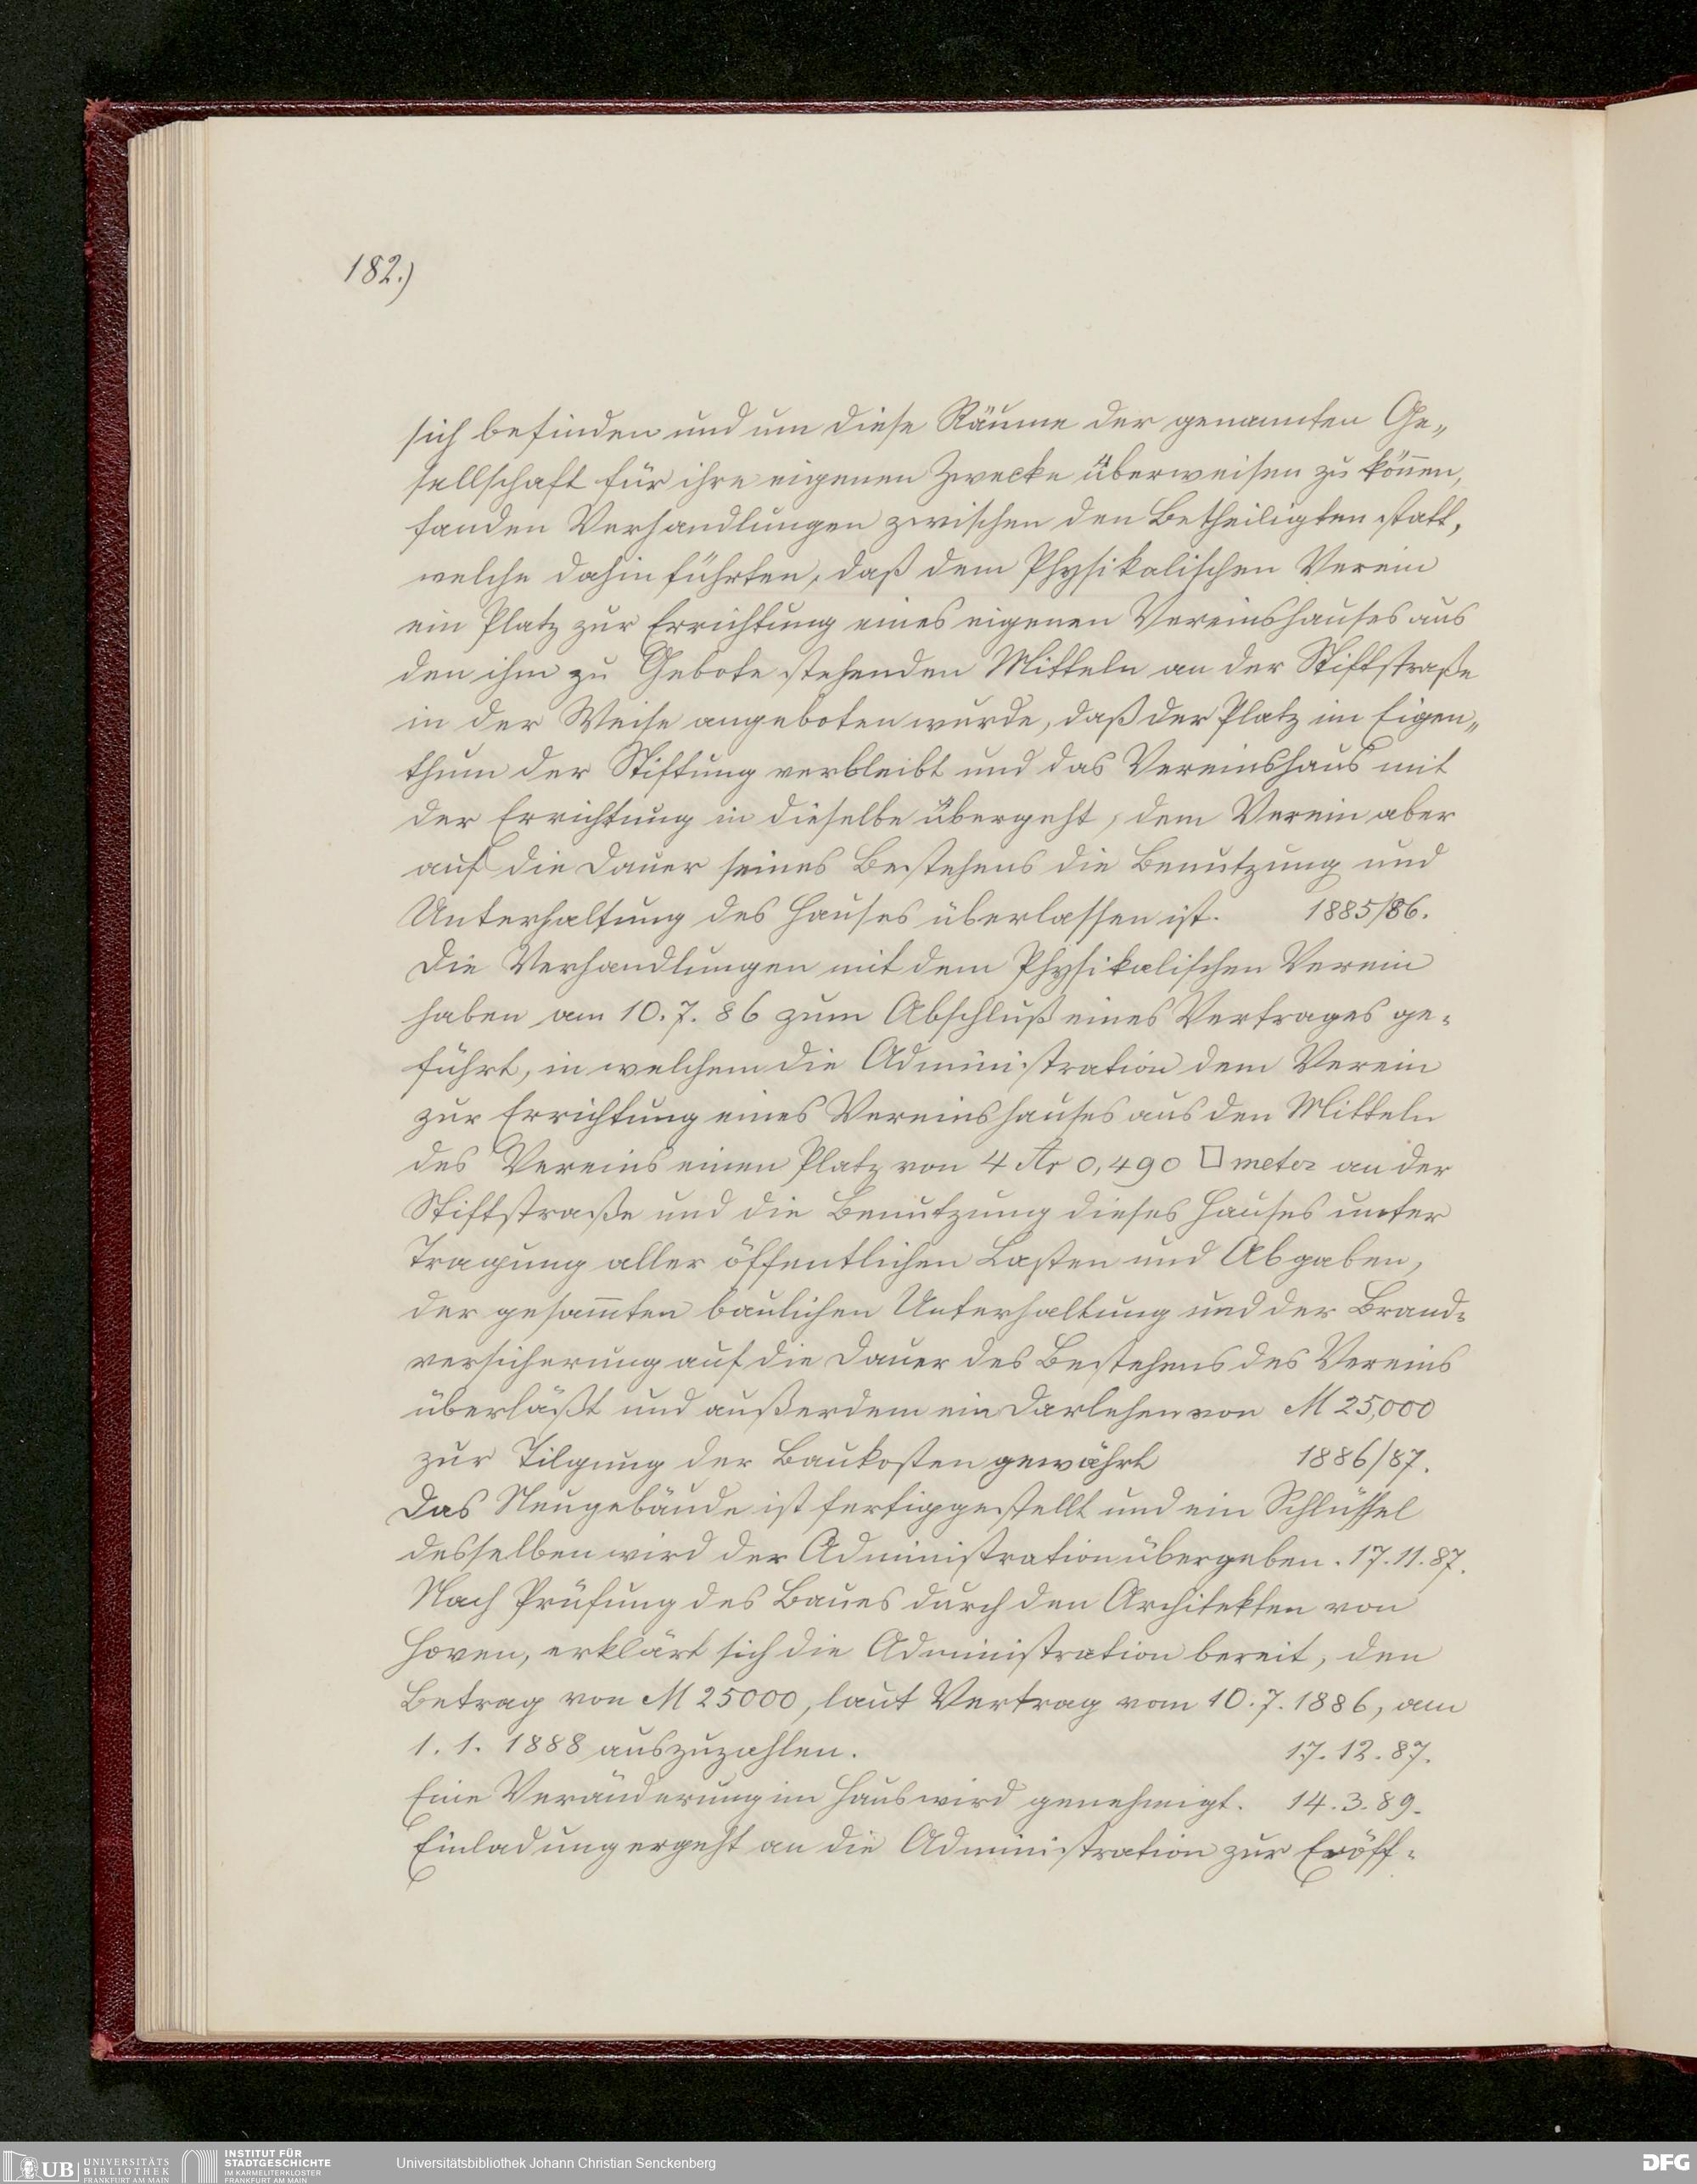 182.)
sich befinden und um diese Räume der genannten Ge„
sellschaft für ihre eigenen Zwecke überweisen zu kön̄en,
fanden Verhandlungen zwischen den Betheiligten statt,
welche dahin führten, daß dem Physikalischen Verein
ein Platz zur Errichtung eines eigenen Vereinshauses aus
den ihm zu Gebote stehenden Mitteln an der Stiftstraße
in der Weise angeboten wurde, daß der Platz im Eigen„
thum der Stiftung verbleibt und das Vereinshaus mit
der Errichtung in dieselbe übergeht, dem Verein aber
auf die Dauer seines Bestehens die Benutzung und
Unterhaltung des Hauses überlassen ist. 1885/86.
Die Verhandlungen mit dem Physikalischen Verein
haben am 10.7.86 zum Abschluß eines Vertrages ge=
führt, in welchem die Administration dem Verein
zur Errichtung eines Vereinshauses aus den Mitteln
des Vereins einen Platz von 4 Ar 0,490 □meter an der
Stiftstraße und die Benutzung dieses Hauses unter
Tragung aller öffentlichen Lasten und Abgaben,
der gesam̄ten baulichen Unterhaltung und der Brand=
versicherung auf die Dauer des Bestehens des Vereins
überläßt und außerdem ein Darlehen von M 25,000
zur Tilgung der Baukosten gewährt 1886/87.
Das Neugebäude ist fertiggestellt und ein Schlüssel
desselben wird der Administration übergeben. 17.11.87.
Nach Prüfung des Baues durch den Architekten von
Hoven, erklärt sich die Administration bereit, den
Betrag von M 25000, laut Vertrag vom 10.7.1886, am
1.1.1888 auszuzahlen. 17.12.87.
Eine Veränderung im Haus wird genehmigt. 14.3.89.
Einladung ergeht an die Administration zur Eröff=
UB UNIVERSITÄTS
BIBLIOTHEK
FRANKFURT AM MAIN
INSTITUT FÜR
STADTGESCHICHTE
IM KARMELITERKLOSTER
FRANKFURT AM MAIN
Universitätsbibliothek Johann Christian Senckenberg
DFG